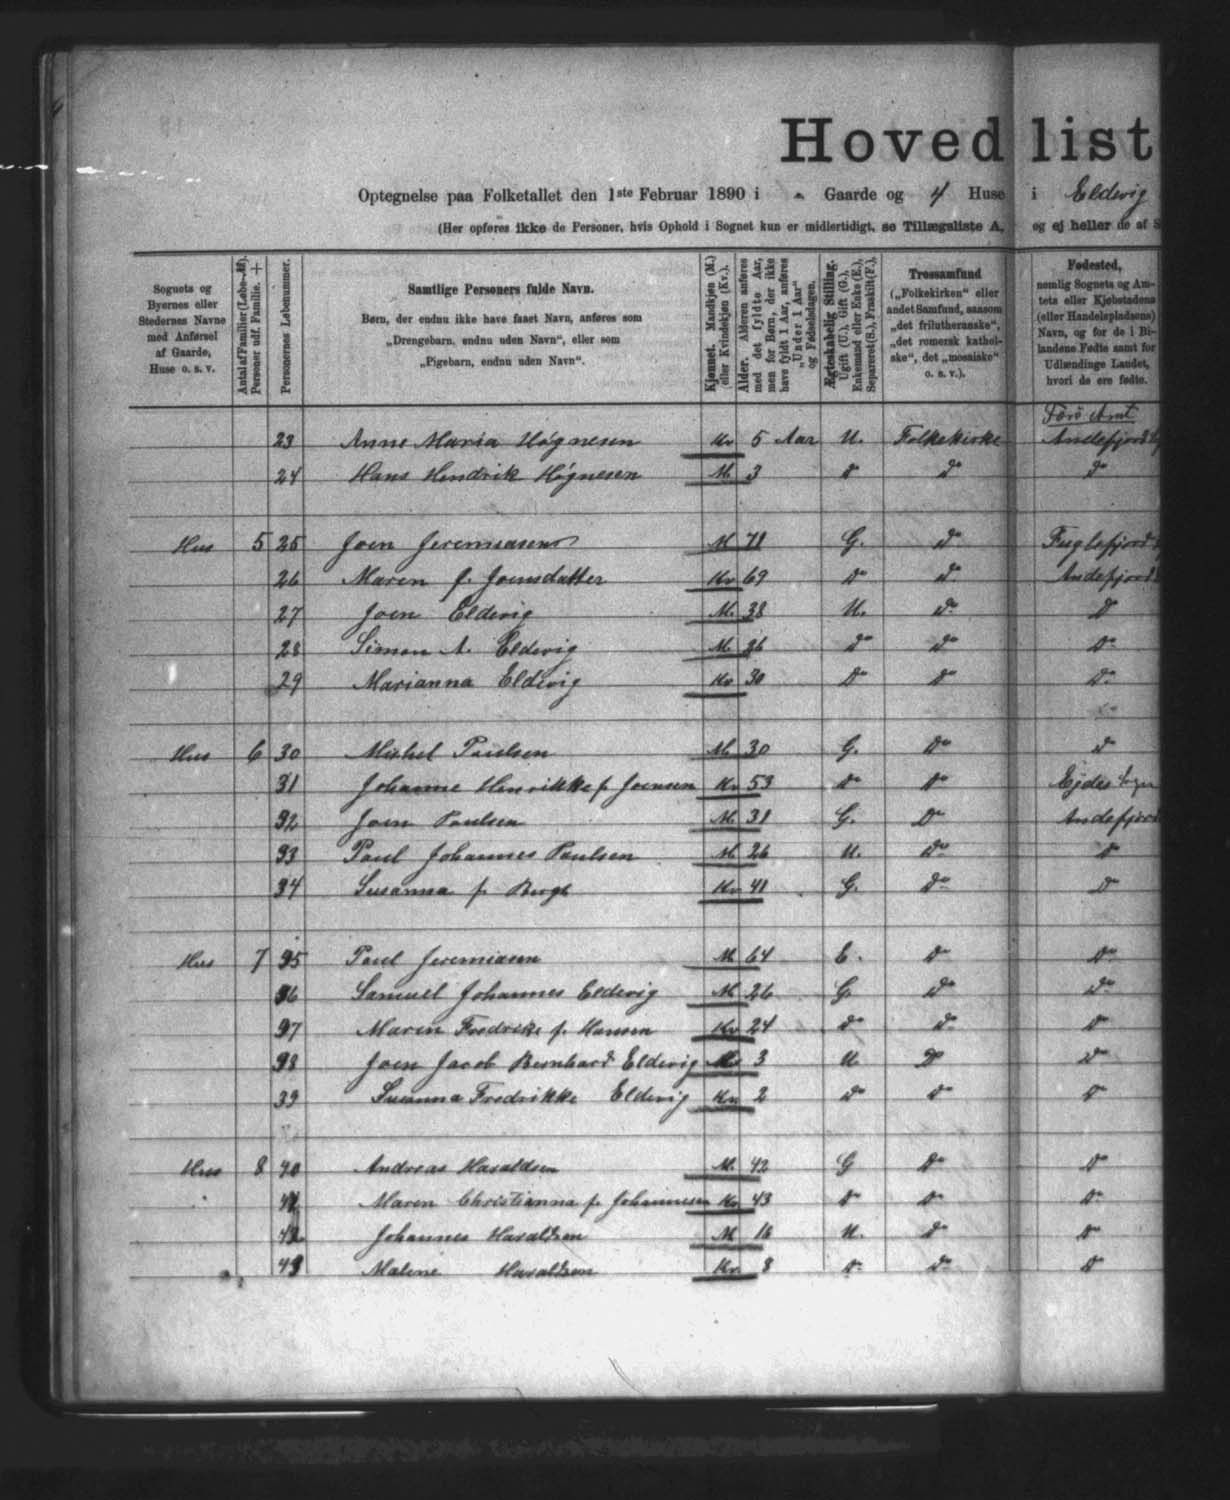 Hovedlist
Optegnelse paa Folketallet den 1ste Februar 1890 i „ Gaarde og 4 Huse i Eldevig
(Her opføres ikke de Personer, hvis Ophold i Sognet kun er midlertidigt, se Tillægsliste A, og ej heller de af S
Sognets og Byernes eller Stedernes Navne med Anførsel af Gaarde, Huse o. s. v.
Antal af Familier (Løbe-№). Personer udf. Familie. +
Personernes Løbenummer.
Samtlige Personers fulde Navn.
Børn, der endnu ikke have faaet Navn, anføres som „Drengebarn, endnu uden Navn“, eller som „Pigebarn, endnu uden Navn“.
Kjønnet. Mandkjøn (M.) eller Kvindekjøn (Kv.).
Alder. Alderen anføres med det fyldte Aar, men for Børn, der ikke have fyldt 1 Aar, anføres „Under 1 Aar“ og Fødselsdagen.
Ægteskabelig Stilling. Ugift (U.), Gift (G.), Enkemand eller Enke (E.), Separeret (S.), Fraskilt (F.),
Trossamfund („Folkekirken“ eller andet Samfund, saasom „det frilutheranske“, „det romersk katholske“, det „mosaiske“ o. s. v.).
Fødested, nemlig Sognets og Amtets eller Kjøbstadens (eller Handelspladsens) Navn, og for de i Bilandene Fødte samt for Udlændinge Landet, hvori de ere fødte.
Færø Amt
23 Anne Maria Høgnesen Kv 5 Aar U. Folkekirke Andefjord
24 Hans Hendrik Høgnesen M. 3 Do Do Do
Hus 5 25 Joen Jeremiasen M 71 G. Do Fuglefjord
26 Maren f. Joensdatter Kv 69 Do Do Andefjord
27 Joen Eldevig M. 38 U. Do Do
28 Simon A. Eldevig M. 36 Do Do Do
29 Marianna Eldevig Kv 30 Do Do Do
Hus 6 30 Michel Paulsen M. 30 G. Do Do
31 Johanne Henrikke f. Joensen Kv 53 Do Do Ejdes Sogn
32 Joen Paulsen M. 31 G. Do Andefjord
33 Paul Johannes Paulsen M 26 U. Do Do
34 Susanna f. Berg Kv 41 G. Do Do
Hus 7 35 Paul Jeremiasen M 64 E. Do Do
36 Samuel Johannes Eldevig M 26 G. Do Do
37 Maren Fredrike f. Hansen Kv 24 Do Do Do
38 Joen Jacob Bernhard Eldevig M 3 U. Do Do
39 Susanna Fredrikke Eldevig Kv 2 Do Do Do
Hus 8 40 Andreas Haraldsen M. 42 G Do Do
41 Maren Christianna f. Johannesen Kv 43 Do Do Do
42 Johannes Haraldsen M 16 U. Do Do
43 Malene Haraldsen Kv. 8 Do Do Do